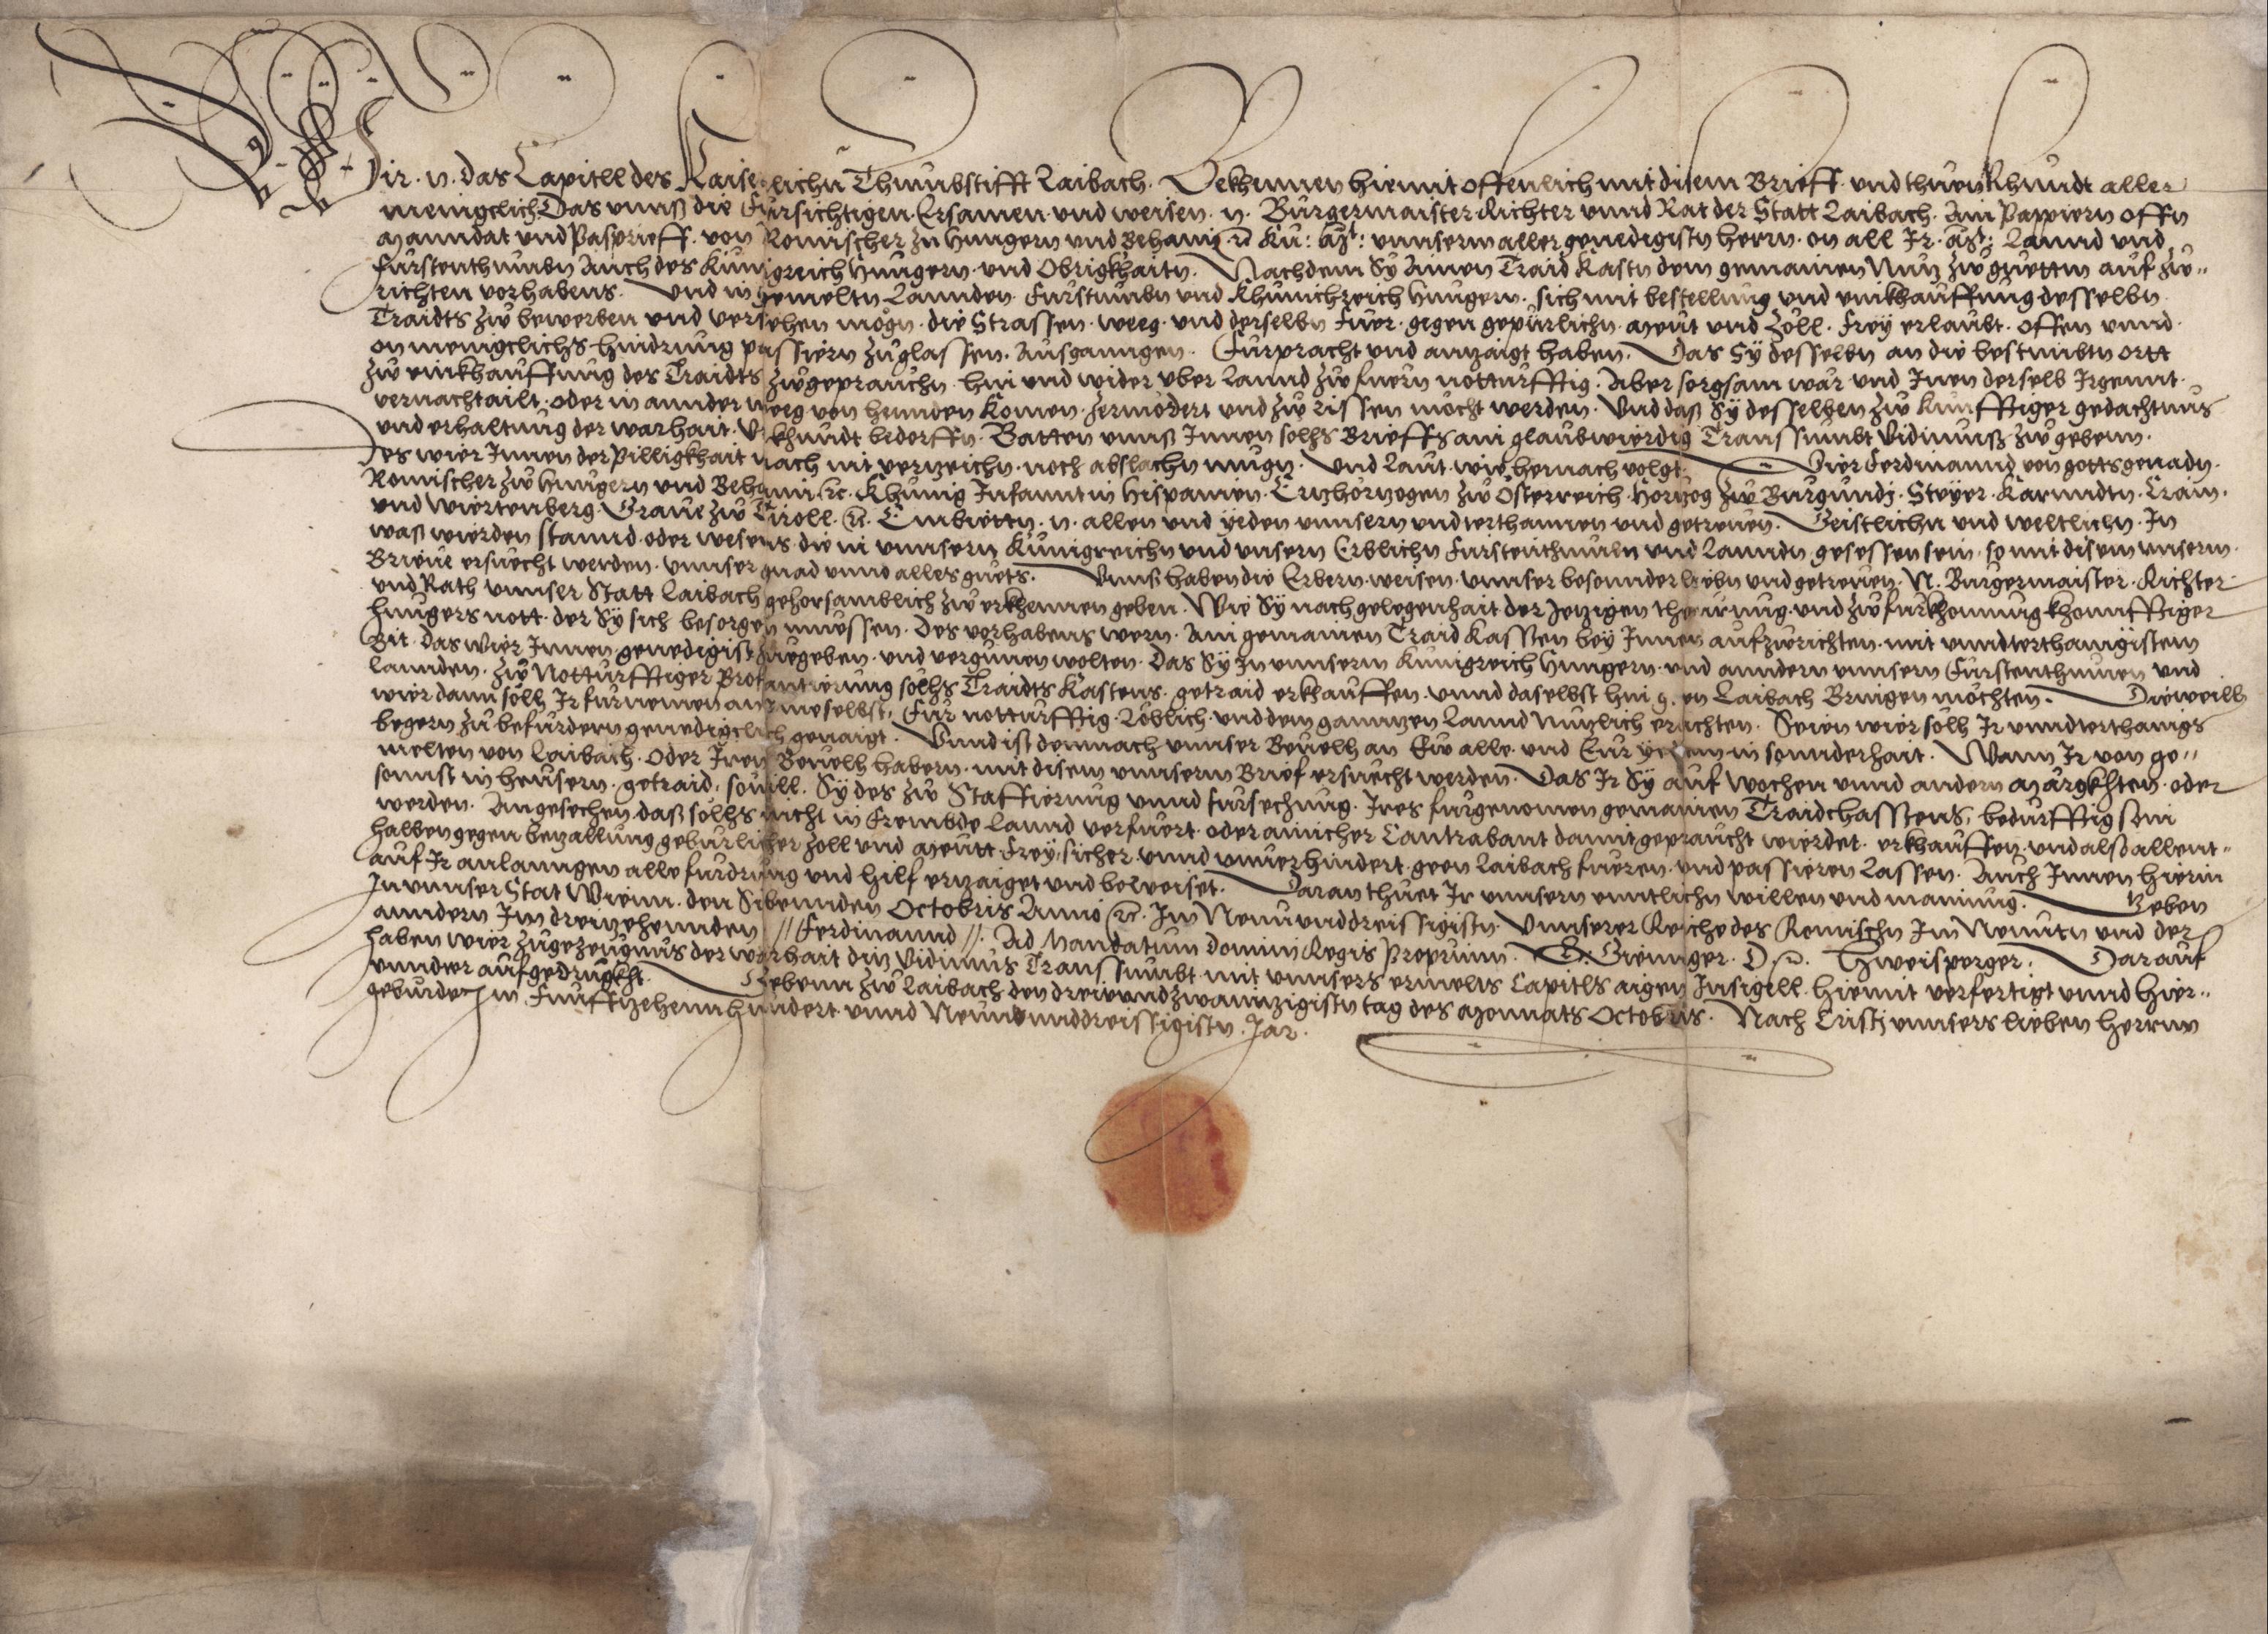 Wir .n. das Capitell des Kaiserlichn Thumbstifft Laibach. Bekhennen hiemit offenlich mit disem Brieff. und thuen khundt aller
menigclich Das unnß die Fürsichtigen. Ersamen und weisen. n. Burgermaister Richter unnd Rat der Statt Laibach. Ain Pappieren offn
Manndat und Paßbrieff. von Romischer zu Hungern und Behaim ꝛc Kü: Mt: unnserm aller genedigistn herrn. on all Ir. Mt: Lannd und
Furstenthumbn Auch des Künigreich Hungern. und Obrigkhaitn. Nachdem Sy Ainen Traid Kastn dem gemainen Nuz zw guettm auf zw"
richten vorhabens. Und in gemeltn Lannden. Furstumbn und Khunichreich Hungern. sich mit bestellung und einkhauffung desselbn
Traidts zw bewerben und versehen mögn. die Strassen. weeg. und derselbn Fuer. gegen gepurlichn. Meut und Zöll. Frey erlaubt. offen unnd
on menigclichs hindrnung passiern zuglassen. Ausganngen. Furpracht und anzaigt haben. Das Sy desselbn an die bestimbtn ortt
zw einkhauffung des Traidts zwgeprauchn. hin und wider uber Lannd zw fuern notturfftig. Aber sorgsam wär und Inen derselb Irgennt
vernachtailt. oder in annder weeg von hennden komen. zermodert und zw rissen möcht werden. Und daß Sy desselben zw künfftiger gedachtnus
und erhaltung der warhait. Urkhundt bedorffn. Batten unnß Innen solhs Brieffs ain glaubwierdig Transsumbt Vidimuß zw gebenn.
Des wier Innen der pilligkhait nach nit verzeichn. noch abslachn mugn. Und Laut. wie hernach volgt. Wier Ferdinannd von gotts genadn.
Romischer zw Hungern und Behaim. ꝛc. Khunig Infannt in Hispanien. Ertzhörtzogen zw Osterreich. Hörtzog zw Burgundj. Steyer. Karnndtn. Crain.
und Wiertenberg. Graue zw Tiroll. ꝛc. Embiettn. n. allen und yeden unnsern unndterthannen und getreuen. Geistlichn und weltlichn. In
waß wierden stannd. oder wesens. die in unnsern Künigreichn und unsern Erblichn Furstenthumbn und Lanndn gesessen sein. so mit disem unserm
Brieue ersuecht werden. unnser gnad unnd alles guets. Unnß haben die Erbern. weisen. unnser besonnder liebn und getreuen. N. Burgermaister. Richter
und Rath unnser Statt Laibach gehorsamblich zw erkhennen geben. Wie Sy nach gelegenhait der Jetzigen theurung. und zw furkhomung khonnfftiger
hungers nott. der Sy sich besorgen muessen. Des vorhabens wern. Ain gemainen Traid Kassten bey Innen aufzwrichten. mit unndterthanigistem
Bit. das wier Innen genedigist zuegeben. und vergunen wolten. Das Sy In unnserm Künigreich Hungern. und anndern unnsern Furstenthumen und
Lannden. zw Notturfftiger Profantierung solhs Traidts Kastens. getraid erkhauffen. unnd daselbst hin gen Laibach Bringen möchten. Dieweill
wier dann solh Ir furnemen an ime selbst. Fur notturfftig. Loblich. und dem ganntzen Lannd Nutzlich erachten. Seien wier solh Ir unndterthanigs
begern zu befurdern genedigclich genaigt. Unnd ist demnach unnser Beuelh an Eu alle. und Eur yeden in sonnderhait. Wann Ir von ge"
melten von Laibach. oder Iren Beuelh habern. mit disem unnserm Brief ersuecht werden. Das Ir Sy auf Wochen unnd andern Märgkhten. oder
sonnst in heusern. getraid. souill. Sy des zw Staffierung unnd fursechung. Ires furgenomen gemainen Traidchasstens, bedurfftig sein
werden. Angesechen, daß solhs nicht in Frembde Lannd verfuert. oder ainicher Contrabant damit gepraucht wierdet. erkhauffen. und also allent"
halben gegen bezallung geburlicher Zoll und Meutt. Frey. sicher. unnd unuerhindert. geen Laibach fueren. und passieren Lassen. Auch Innen hierin
auf Ir anlanngen alle furdrung und hilf erzaiget und beweiset. Daran thuet Ir unnsern enntlichn willen und mainung. Geben
In unnser Stat Wienn. den Sibennden Octobris Anno ꝛc. Im Neunundreissigistn. Unnserer Reiche des Romischn Im Neuntn und der
anndern Im dreizehennden // Ferdinannd //. Ad Mandatum Domini Regis Proprium. Darauf
haben wier zugezeugnus der warhait ditz Vidimus Transsumbt. mit unnsers ermelts Capitls aigen Insigell. hiemit verfertigt unnd hier"
unndter aufgedrugkht. Gebenn zw Laibach den dreiundzwaintzigistn tag des Monnats Octobris. Nach Cristj unnsers lieben herrnn
geburde Im Funfftzehennhundert unnd Neunundreissigistn. Jar.